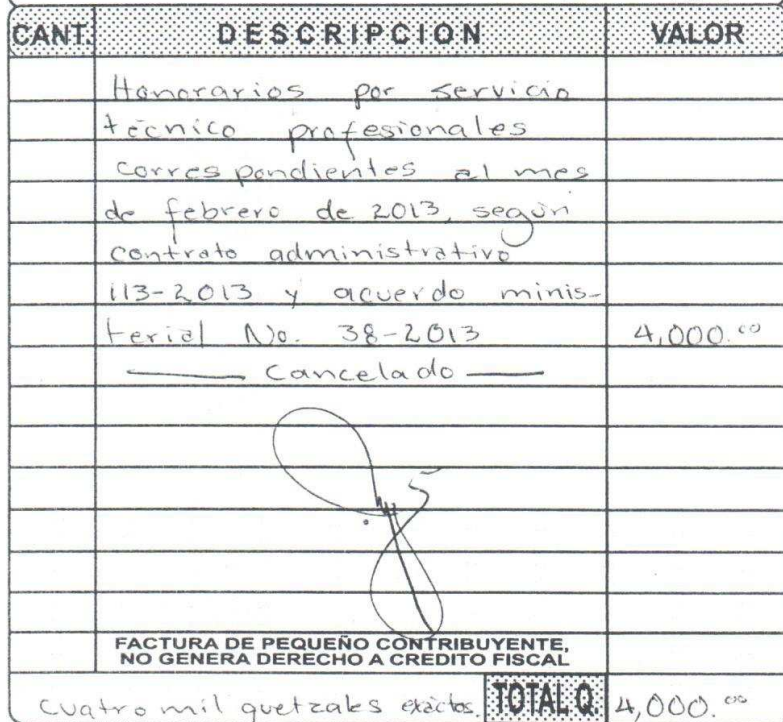 CANT. DESCRIPCION VALOR
Honorarios por servicio
técnico profesionales
correspondientes al mes
de febrero de 2013, según
contrato administrativo
113-2013 y acuerdo minis-
terial No. 38-2013 4,000.00
Cancelado
FACTURA DE PEQUEÑO CONTRIBUYENTE,
NO GENERA DERECHO A CREDITO FISCAL
Cuatro mil quetzales exactos. TOTAL Q 4,000.00